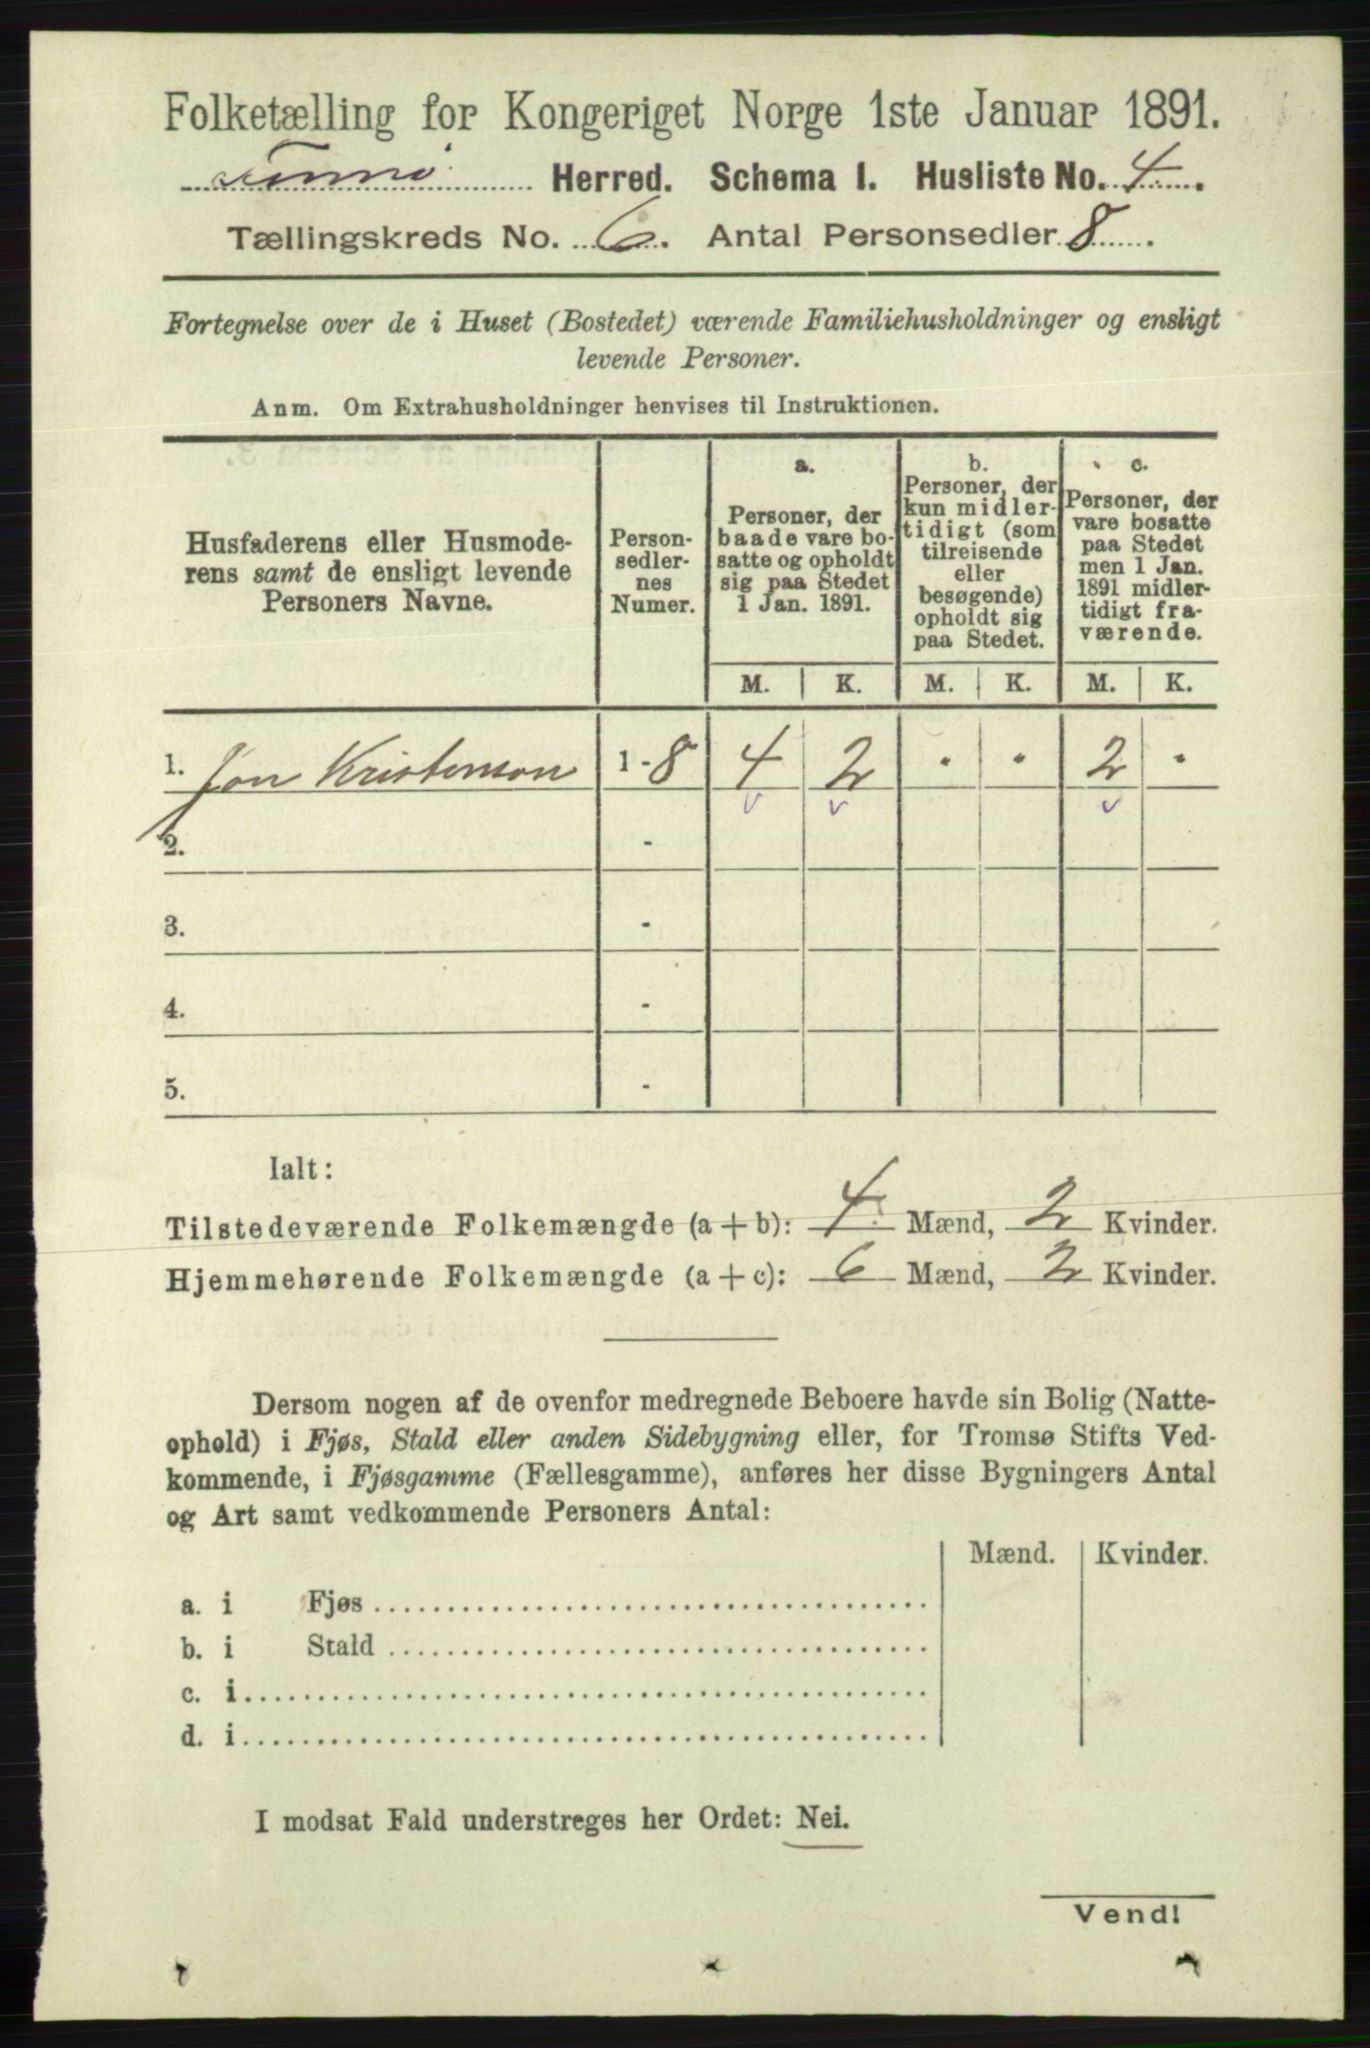 Folketælling for Kongeriget Norge 1ste Januar 1891.
Herred. Schema I. Husliste No. 4.
Tællingskreds No. 6. Antal Personsedler 8.
Fortegnelse over de i Huset (Bostedet) værende Familiehusholdninger og ensligt
levende Personer.
Anm. Om Extrahusholdninger henvises til Instruktionen.
Husfaderens eller Husmode-
rens samt de ensligt levende
Personers Navne.
Person-
sedler-
nes
Numer.
a.
Personer, der
baade vare bo-
satte og opholdt
sig paa Stedet
1 Jan. 1891.
b.
Personer, der
kun midler-
tidigt (som
tilreisende
eller
besøgende)
opholdt sig
paa Stedet.
c.
Personer, der
vare bosatte
paa Stedet
men 1 Jan.
1891 midler-
tidigt fra-
værende.
M. K. M. K. M. K.
1. Jon Kristenson 1-8 4 2 · · 2 ·
v v v
2. -
3. -
4. -
5. -
Ialt:
Tilstedeværende Folkemængde (a + b): 4 Mænd, 2 Kvinder.
Hjemmehørende Folkemængde (a + c): 6 Mænd, 2 Kvinder.
Dersom nogen af de ovenfor medregnede Beboere havde sin Bolig (Natte-
ophold) i Fjøs, Stald eller anden Sidebygning eller, for Tromsø Stifts Ved-
kommende, i Fjøsgamme (Fællesgamme), anføres her disse Bygningers Antal
og Art samt vedkommende Personers Antal:
Mænd. Kvinder.
a. i Fjøs
b. i Stald
c. i
d. i
I modsat Fald understreges her Ordet: Nei.
Vend!